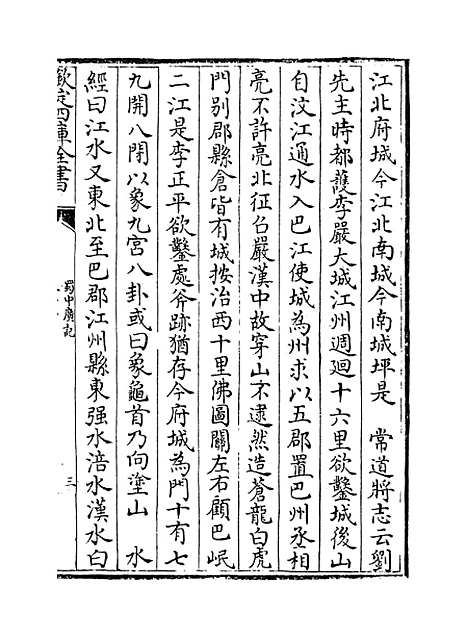 江北府城今江北南城今南城坪是　常道將志云劉
先主時都護李嚴大城江州週迴十六里欲鑿城後山
自汶江通水入巴江使城為州求以五郡置巴州丞相
亮不許亮北征召嚴漢中故穿山不逮然造蒼龍白虎
門别郡縣倉皆有城按治西十里佛圖關左右顧巴岷
二江是李正平欲鑿處斧跡猶存今府城為門十有七
九開八閉以象九宫八卦或曰象龜首乃向塗山　水
經曰江水又東北至巴郡江州縣東强水涪水漢水白
欽定四庫全書
蜀中廣記
三